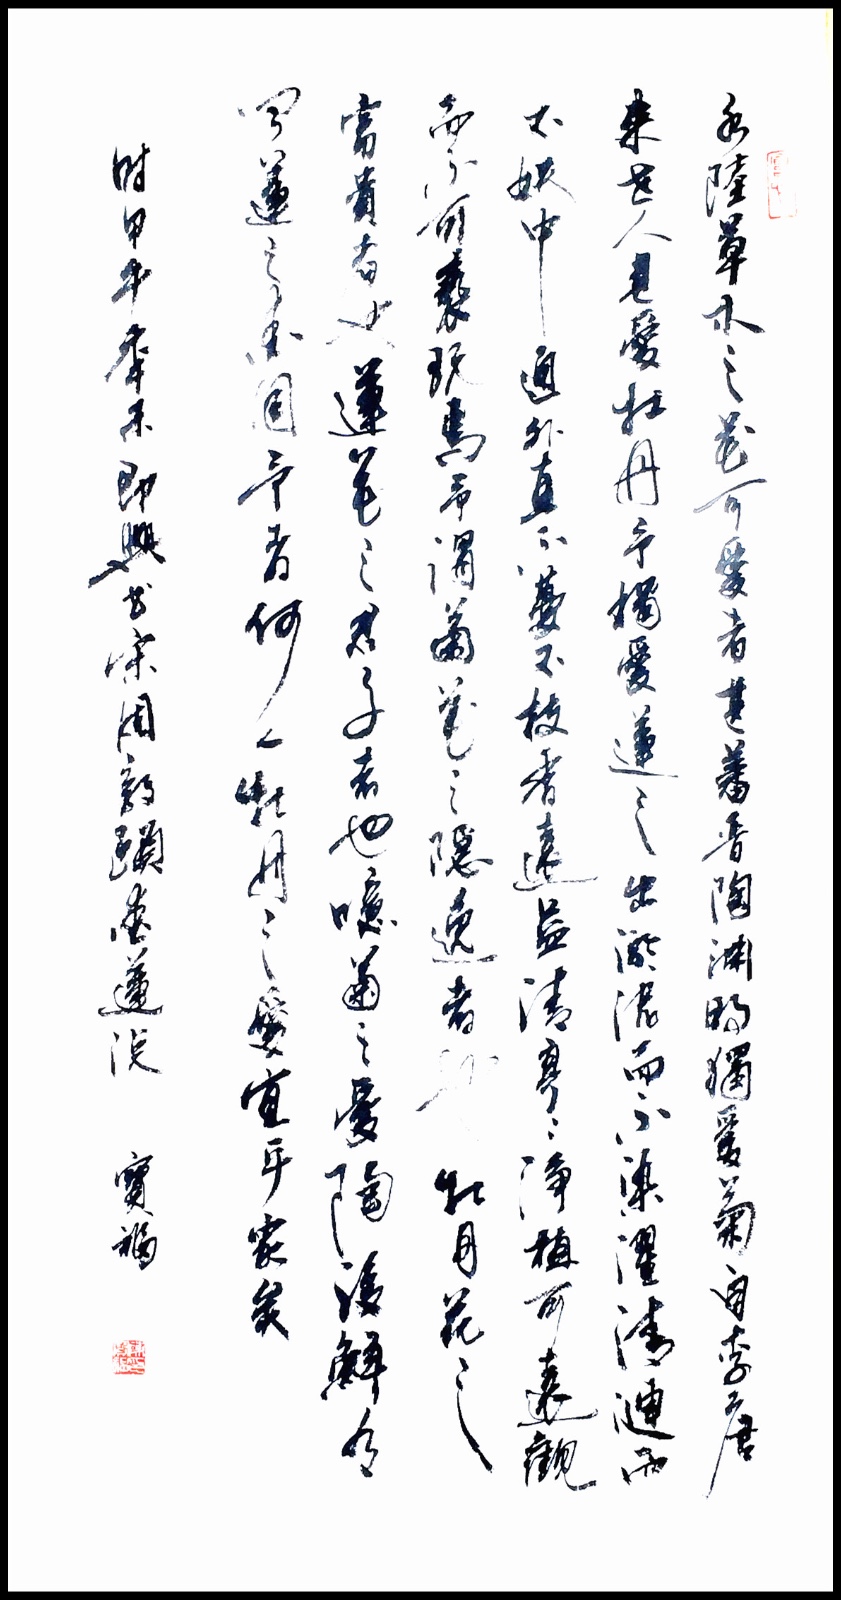 水陸草木之花可愛者甚蕃晉陶淵明獨愛菊自李唐
來世人甚愛牡丹予獨愛蓮之出淤泥而不染濯清漣而
不妖中通外直不蔓不枝香遠益清亭亭淨植可遠觀
而不可褻玩焉予謂菊花之隱逸者也牡丹花之
富貴者也蓮花之君子者也噫菊之愛陶後鮮有
聞蓮之愛同予者何人牡丹之愛宜乎衆矣
時甲午即興書宋周敦頤愛蓮説 寶福